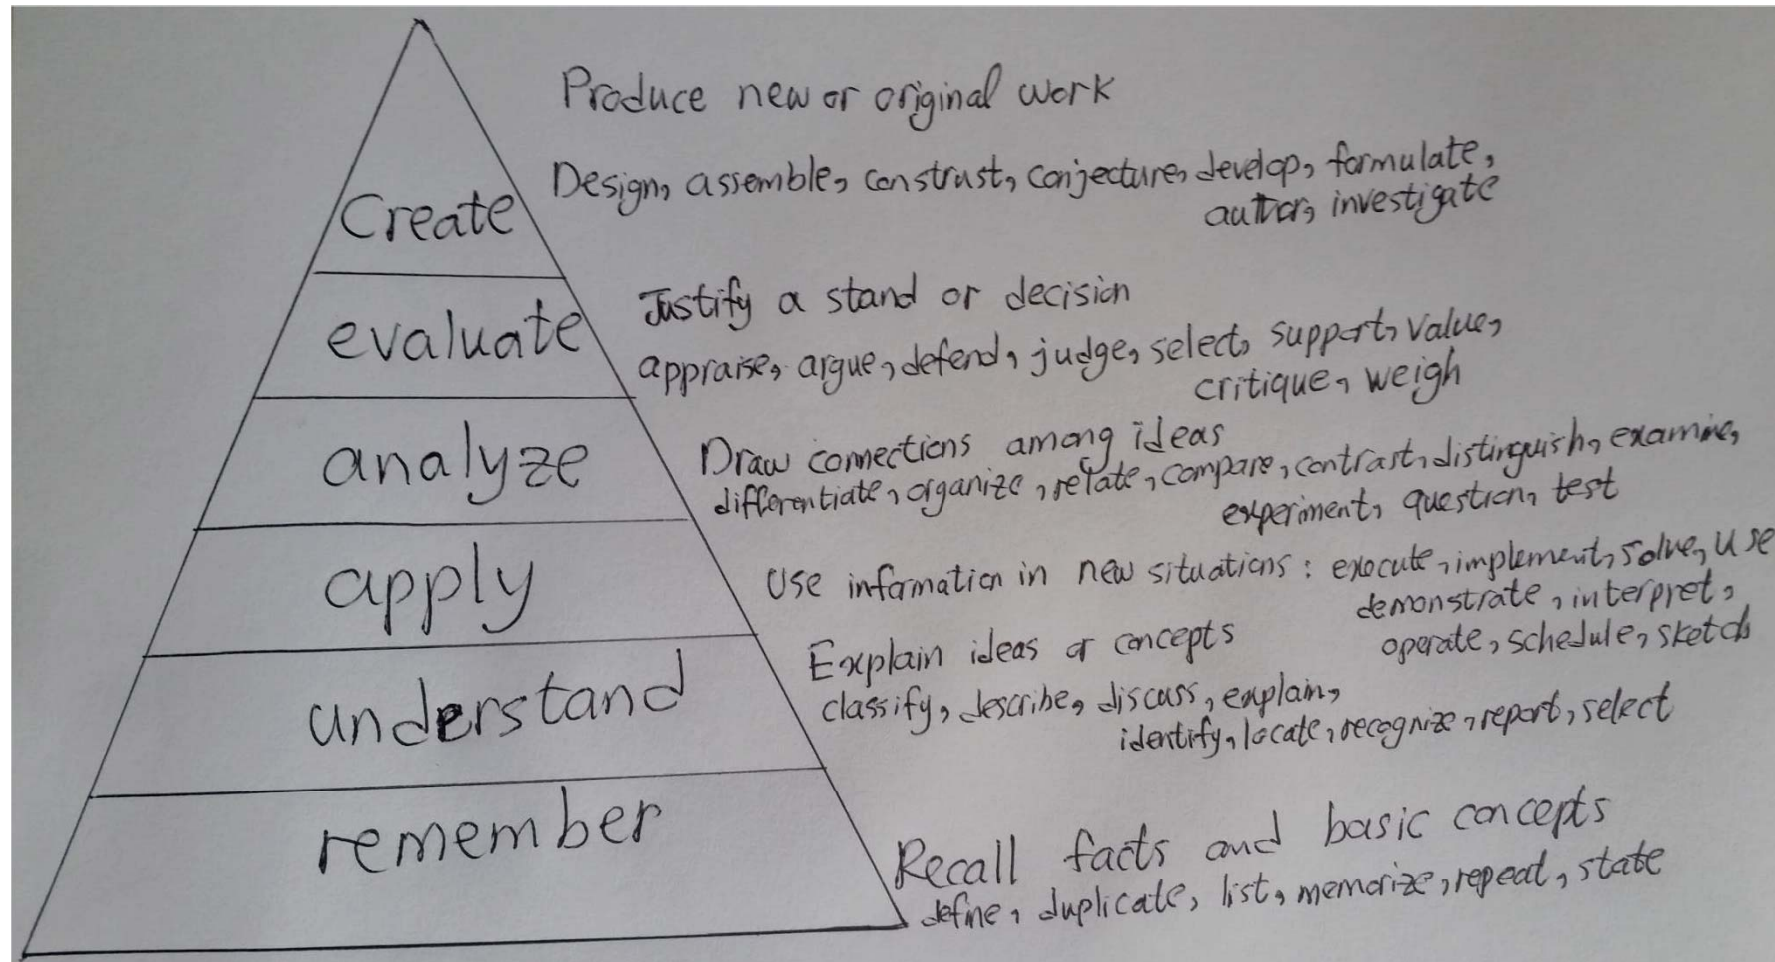 Produce new or original work
Design, assemble, construst, conjecture, develop, formulate,
author, investigate
Create
Justify a stand or decision
evaluate
appraise, argue, defend, judge, select, support, value,
critique, weigh
Draw connections among ideas
analyze
differentiate, organize, relate, compare, contrast, distinguish, examine,
experiment, question, test
Use information in new situations : execute, implement, solve, use
apply
demonstrate, interpret,
operate, schedule, sketch
Explain ideas or concepts
understand
classify, describe, discuss, explain,
identify, locate, recognize, report, select
remember
Recall facts and basic concepts
define, duplicate, list, memorize, repeat, state